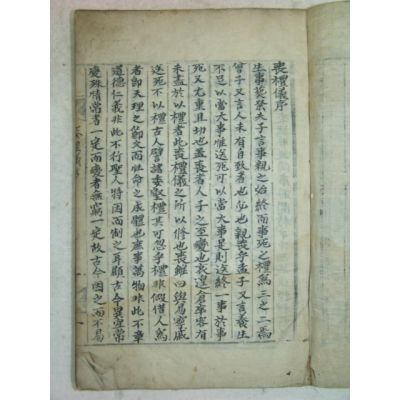 喪禮儀序
生事葬祭夫子言事親之始終而事死之禮爲三之二焉
曾子又言人未有自致者也必也親喪乎孟子又言養生
不以當大事惟送死可以當大事是則送終一事於事
死又尤重且切也盖喪者人子之至變也哀遑倉卒容有
未盡於以禮者此喪禮儀之所以修也喪雖曰與易寧戚
送死不以禮古人譬諸委壑禮其可忽乎禮非假借人爲
者卽天理之節文而性命之成體也庶事萬物非此不章
道德仁義非此不行聖人特因而制之耳顧古今異宜常
變殊情常者一定而變者無窮一定故古今因之而不易